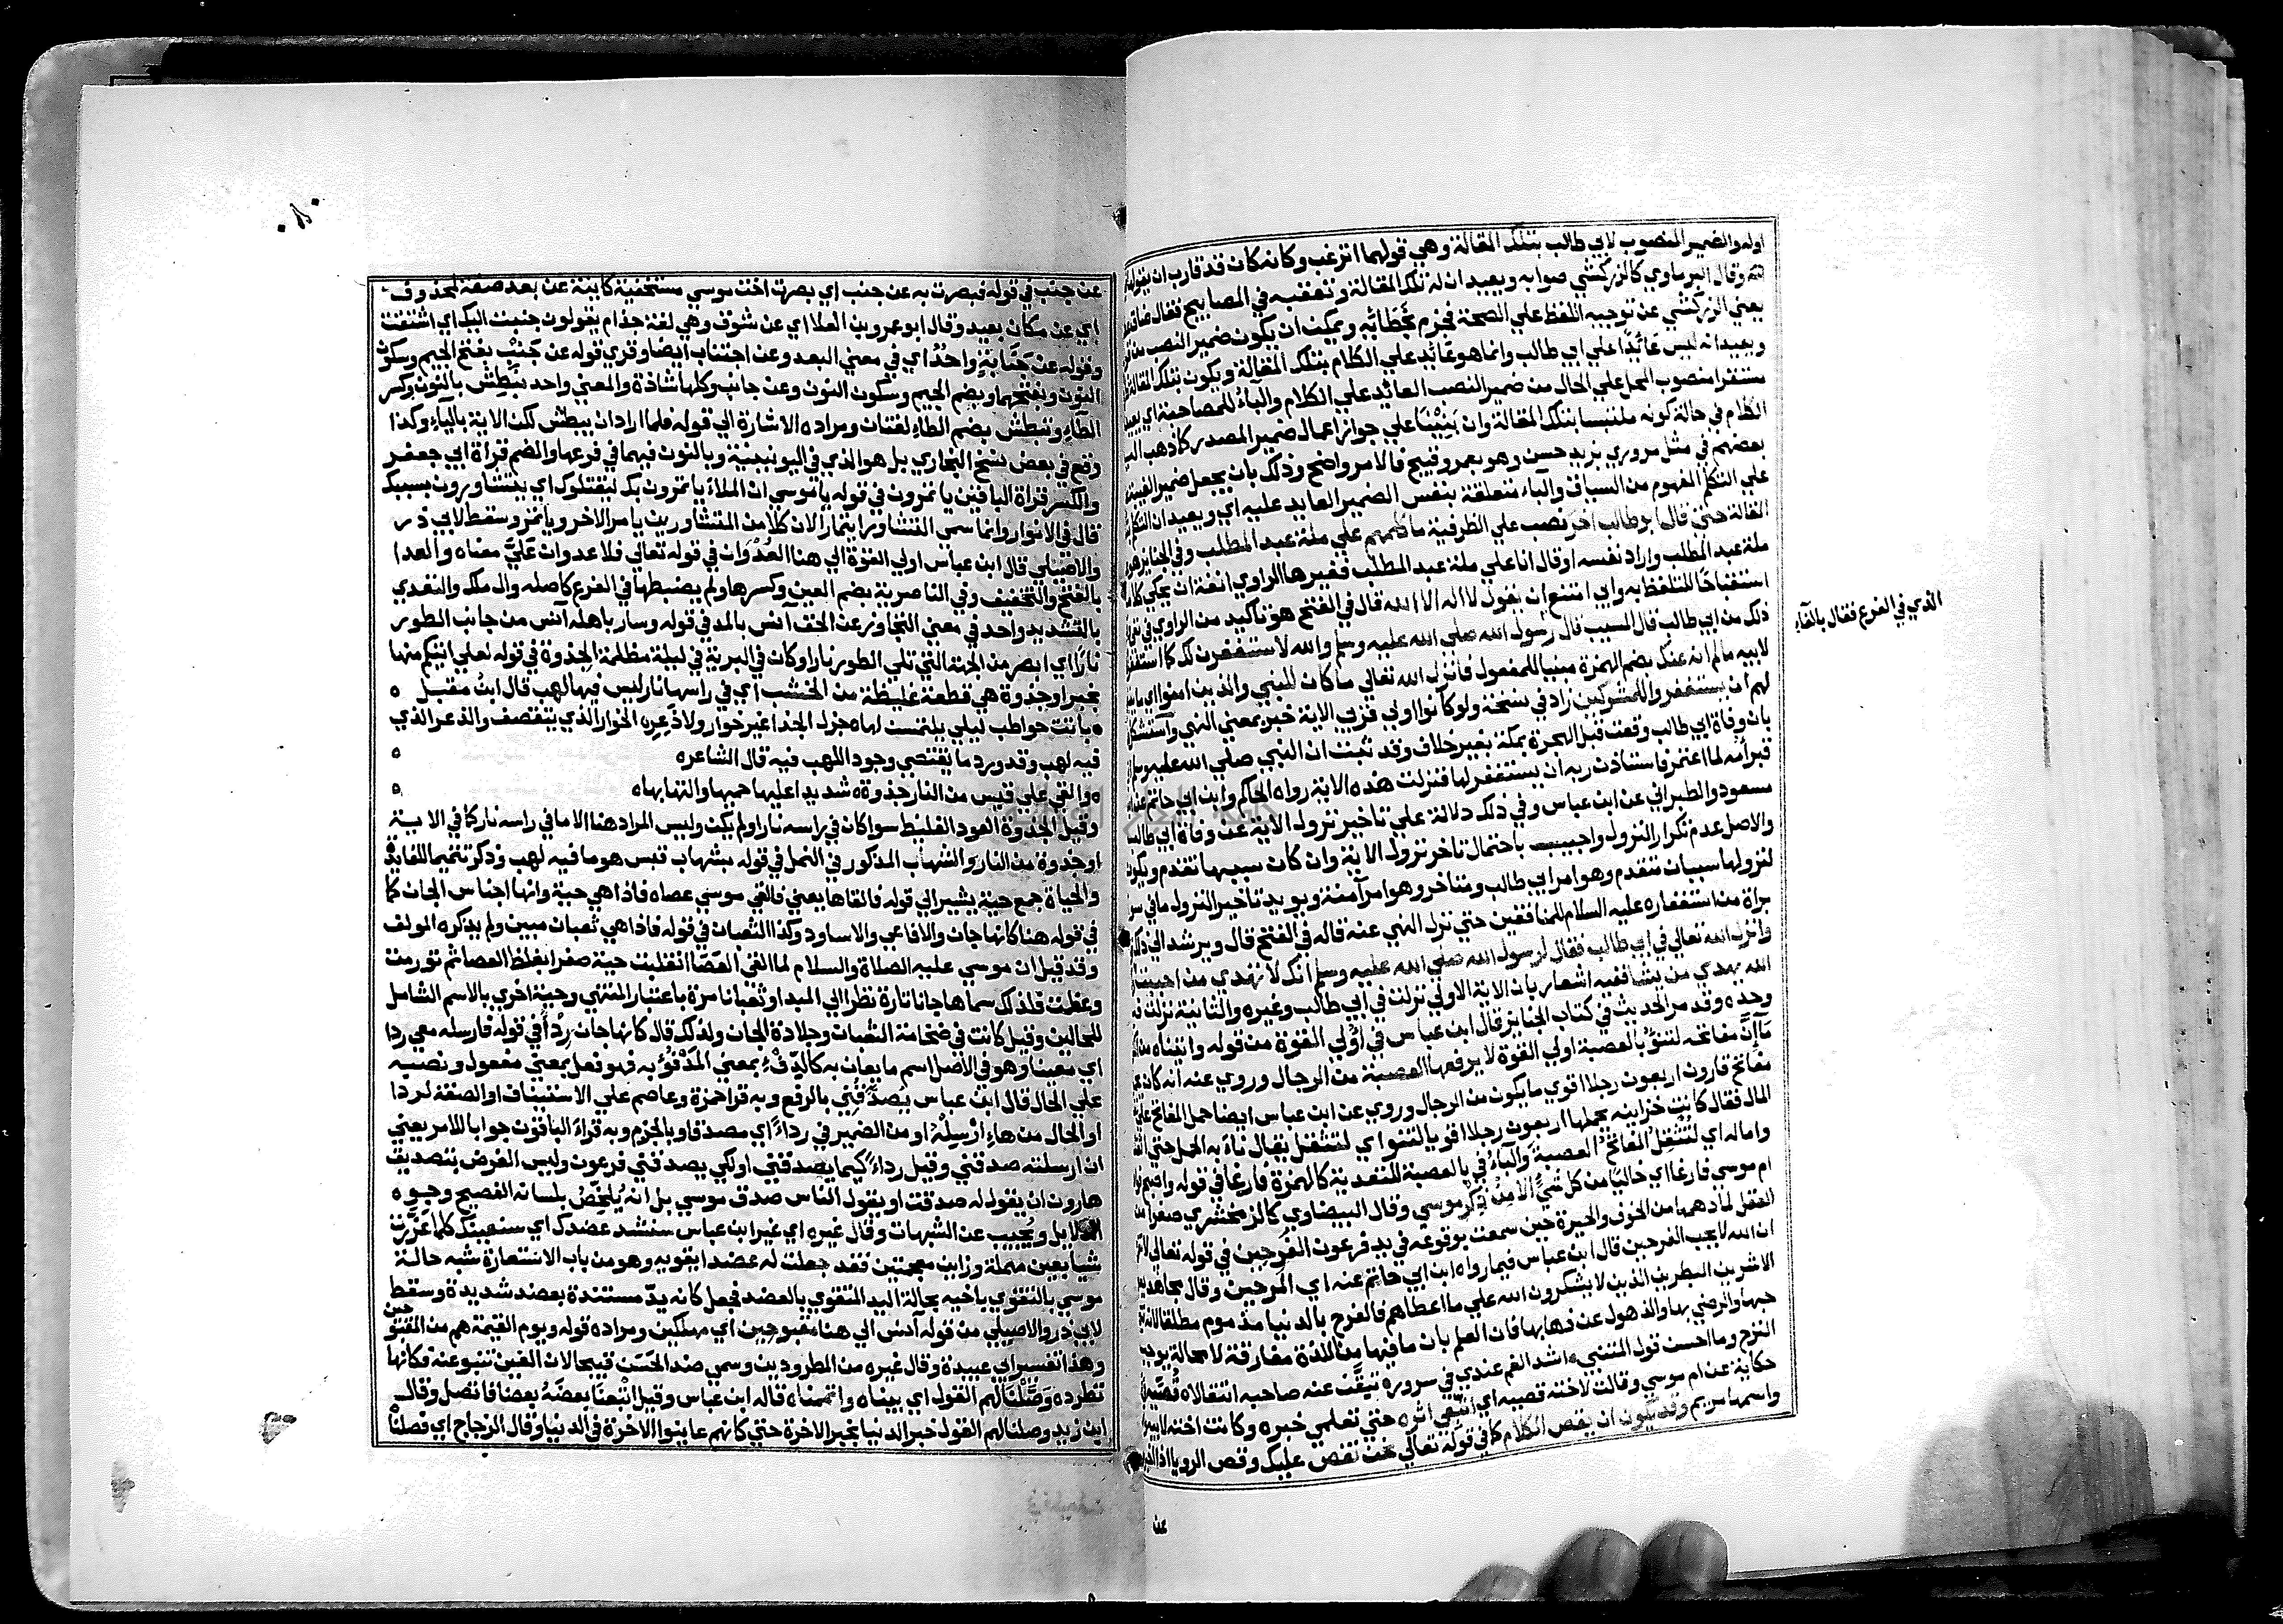 اوله والضمير المنصوب لابي طالب بتلك المقالة وهي قولهما اترغب وكانه كان قد قارب ان يقولها
وقال البرماوي كالزركشي صوابه ويعيدان له تلك المقالة وتعقبه في المصابيح فقال ضاق
يعني الزركشي عن توجيه اللفظ علي الصحة فجزم بخطائه ويمكن ان يكون ضمير النصب من
ويعيدانه ليس عائدا علي ابي طالب وانما هو عائد علي الكلام بتلك المقالة ويكون بتلك المقالة
مستقرا منصوب المحل علي الحال من ضمير النصب العائد علي الكلام والباء للمصاحبة اي يعيدان
الكلام في حالة كونه ملتبسا بتلك المقالة وان بنينا علي جواز اعمال ضمير المصدر كما ذهب اليه
بعضهم في مثل مروري بزيد حسن وهو بعمرو قبيح فالامر واضح وذلك بان يجعل ضمير الغيبة
علي التكلم المفهوم من السياق والباء متعلقة بنفس الضمير العايد عليه اي ويعيدان التكلم
المقالة حتي قال ابو طالب اخر نصب علي الظرفية ما كلمهم علي ملة عبد المطلب وفي الجنايز هو
ملة عبد المطلب واراد نفسه او قال انا علي ملة عبد المطلب فغيرها الراوي انفة ان يحكي كلام
استقباحا للتلفظ به وابي امتنع ان يقول لا اله الا الله قال في الفتح هو تاكيد من الراوي في نفي
ذلك من ابي طالب قال المسيب قال رسول الله صلي الله عليه وسلم والله لاستغفرن لك كما استغفر
لابيه ما لم انه عنك بضم الهمزة مبنيا للمفعول فانزل الله تعالي ما كان للنبي والذين امنوا اي ما ينبغي
لهم ان يستغفروا للمشركين زاد في نسخة ولو كانوا اولي قربي الاية خبر بمعني النهي واستشكل
بان وفاة ابي طالب وقعت قبل الهجرة بمكة بغير خلاف وقد ثبت ان النبي صلي الله عليه وسلم
قبر امه لما اعتمر فاستاذن ربه ان يستغفر لها فنزلت هذه الاية رواه الحاكم وابن ابي حاتم عن ابن
مسعود والطبراني عن ابن عباس وفي ذلك دلالة علي تاخير نزول الاية عن وفاة ابي طالب
والاصل عدم تكرار النزول واجيب باحتمال تاخر نزول الاية وان كان سببها تقدم ويكون
لنزولها سببان متقدم وهو امر ابي طالب ومتاخر وهو امر امنة ويويد تاخير النزول ما في سورة
براة من استغفاره عليه السلام للمنافقين حتي نزل النهي عنه قاله في الفتح قال ويرشد الي ذلك
وانزل الله تعالي في ابي طالب فقال لرسول الله صلي الله عليه وسلم انك لا تهدي من احببت
الله يهدي من يشا ففيه اشعار بان الاية الاولي نزلت في ابي طالب وغيره والثانية نزلت فيه
وحده وقد مر الحديث في كتاب الجنايز قال ابن عباس في اولي القوة من قوله واتيناه من الكنوز
ما ان مفاتحه لتنوء بالعصبة اولي القوة لا يرفعها العصبة من الرجال وروي عنه انه كان يحمل
مفاتح قارون اربعون رجلا اقوي ما يكون من الرجال وروي عن ابن عباس ايضا حمل المفاتح علي
المال فقال كانت خزاينه يحملها اربعون رجلا اقويا لتنو اي لتثقل يقال ناء به الحمل حتي اثقله
واماله اي لتثقل المفاتح العصبة والباء في بالعصبة للتعدية كالهمزة فارغا في قوله واصبح فواد
ام موسي فارغا اي خاليا من كل شي الا من ذكر موسي وقال البيضاوي كالزمخشري صفرا من
العقل لما دهمها من الخوف والحيرة حين سمعت بوقوعه في يد فرعون الفرحين في قوله تعالي لا تفرح
ان الله لا يحب الفرحين قال ابن عباس فيما رواه ابن ابي حاتم عنه اي المرحين وقال مجاهد يعني
الاشرين البطرين الذين لا يشكرون الله علي ما اعطاهم فالفرح بالدنيا مذموم مطلقا لانه
حبها والرضي بها والذهول عن ذهابها فان العلم بان ما فيها من اللذة مفارقة لا محالة يوجب
الترح وما احسن قول المتنبي اشد الغم عندي في سرور تيقن عنه صاحبه انتقالا قصيه
حكاية عن ام موسي وقالت لاخته قصيه اي اتبعي اثره حتي تعلمي خبره وكانت اخته لابيه
واسمها مريم وقد يكون ان يقص الكلام كما في قوله تعالي نحن نقص عليك وقص الرويا اذا
عن
الذي في الفرع فقال بالفاء
عن جنب في قوله فبصرت به عن جنب اي بصرت اخت موسي مستخفية كاينة عن بعد صفة لمحذوف
اي عن مكان بعيد وقال ابو عمرو بن العلا اي عن شوق وهي لغة جذام يقولون جنبت اليك اي اشتقت
وقوله عن جنابة واحد اي في معني البعد وعن اجتناب ايضا وقري قوله عن جنب بفتح الجيم وسكون
النون وبفتحهما وبضم الجيم وسكون النون وعن جانب وكلها شاذة والمعني واحد نبطش بالنون وكسر
الطاء ونبطش بضم الطاء لغتان ومراده الاشارة الي قوله فلما اراد ان يبطش لكن الاية بالياء وكذا
وقع في بعض نسخ البخاري بل هو الذي في اليونينية وبالنون فيهما في فرعها والضم قراة ابي جعفر
والكسر قراة الباقين ياتمرون في قوله يا موسي ان الملاء ياتمرون بك ليقتلوك اي يتشاورون بسببك
قال في الانوار وانما سمي التشاور ايتمارا لان كلا من المتشاورين يامر الاخر وياتمر وسقط لابي ذر
والاصيلي قال ابن عباس اولي القوة الي هنا العدوان في قوله تعالي فلا عدوان علي معناه والعدا
بالفتح والتخفيف وفي الناصرية بضم العين وكسرها ولم يضبطها في الفرع كاصله وال ملك والتعدي
بالتشديد واحد في معني التجاوز عن الحق آنس بالمد في قوله وسار باهله آنس من جانب الطور
نارا اي ابصر من الجهة التي تلي الطور نارا وكان في البرية في ليلة مظلمة الجذوة في قوله لعلي اتيكم منها
بخبر او جذوة هي قطعة غليظة من الخشب اي في راسها نار ليس فيها لهب قال ابن مقبل ه
ه باتت حواطب ليلي يلتمسن لها ه جزل الجذا غير خوار ولا ذعره الخوار الذي يتقصف والذعر الذي
فيه لهب وقد ورد ما يقتضي وجود اللهب فيه قال الشاعره ه
ه والقي علي قبس من النار جذوة ه شديدا عليها حميها والتهابها ه ه
وقيل الجذوة العود الغليظ سوا كان في راسه نار او لم يكن وليس المراد هنا الا ما في راسه نار كما في الاية
او جذوة من النار والشهاب المذكور في النمل في قوله بشهاب قبس هو ما فيه لهب وذكر تتميما للفايدة
والحياة جمع حية يشير الي قوله فالقاها يعني فالقي موسي عصاه فاذا هي حية وانها اجناس الجان كما
في قوله هنا كانها جان والافاعي والاساود وكذا الثعبان في قوله فاذا هي ثعبان مبين ولم يذكره المولف
وقد قيل ان موسي عليه الصلاة والسلام لما القي العصا انقلبت حية صفرا بغلظ العصا ثم تورمت
وعظمت فلذلك سماها جانا تارة نظرا الي المبدا وثعبانا مرة باعتبار المنتهي وحية اخري بالاسم الشامل
للحالين وقيل كانت في ضخامة الثعبان وجلادة الجان ولذلك قال كانها جان ردأ في قوله فارسله معي ردا
اي معينا وهو في الاصل اسم ما يعان به كالدفء بمعني المدفوء به فهو فعل بمعني مفعول ونصبه
علي الحال قال ابن عباس يصدقني بالرفع وبه قرا حمزة وعاصم علي الاستيناف او الصفة لردا
او الحال من هاء ارسله او من الضمير في رداء اي مصدقا وبالجزم وبه قراء الباقون جوابا للامر يعني
ان ارسلته صدقني وقيل رداء كيما يصدقني او لكي يصدقني فرعون وليس الغرض بتصديق
هارون ان يقول له صدقت او يقول الناس صدق موسي بل انه يلخص بلسانه الفصيح وجوه
الدلايل ويجيب عن الشبهات وقال غيره اي غير ابن عباس سنشد عضدك اي سنعينك كلما عززت
شيا بعين مهملة وزاين معجمتين فقد جعلت له عضدا يقويه وهو من باب الاستعارة شبه حالة
موسي بالتقوي باخيه بحالة اليد المتقوي بالعضد فجعل كانه يد مستندة بعضد شديدة وسقط
لابي ذر والاصيلي من قوله آنس الي هنا مقبوحين اي مهلكين ومراده قوله ويوم القيمة هم من المقبوحين
وهذا تفسير ابي عبيدة وقال غيره من المطرودين وسمي ضد الحسن قبيحا لان العين تنبو عنه فكانها
تطرده وصلنا لهم القول اي بيناه واتممناه قاله ابن عباس وقيل اتبعنا بعضه بعضا فاتصل وقال
ابن زيد وصلنا لهم القول خبر الدنيا بخبر الاخرة حتي كانهم عاينوا الاخرة في الدنيا وقال الزجاج اي فصلنا